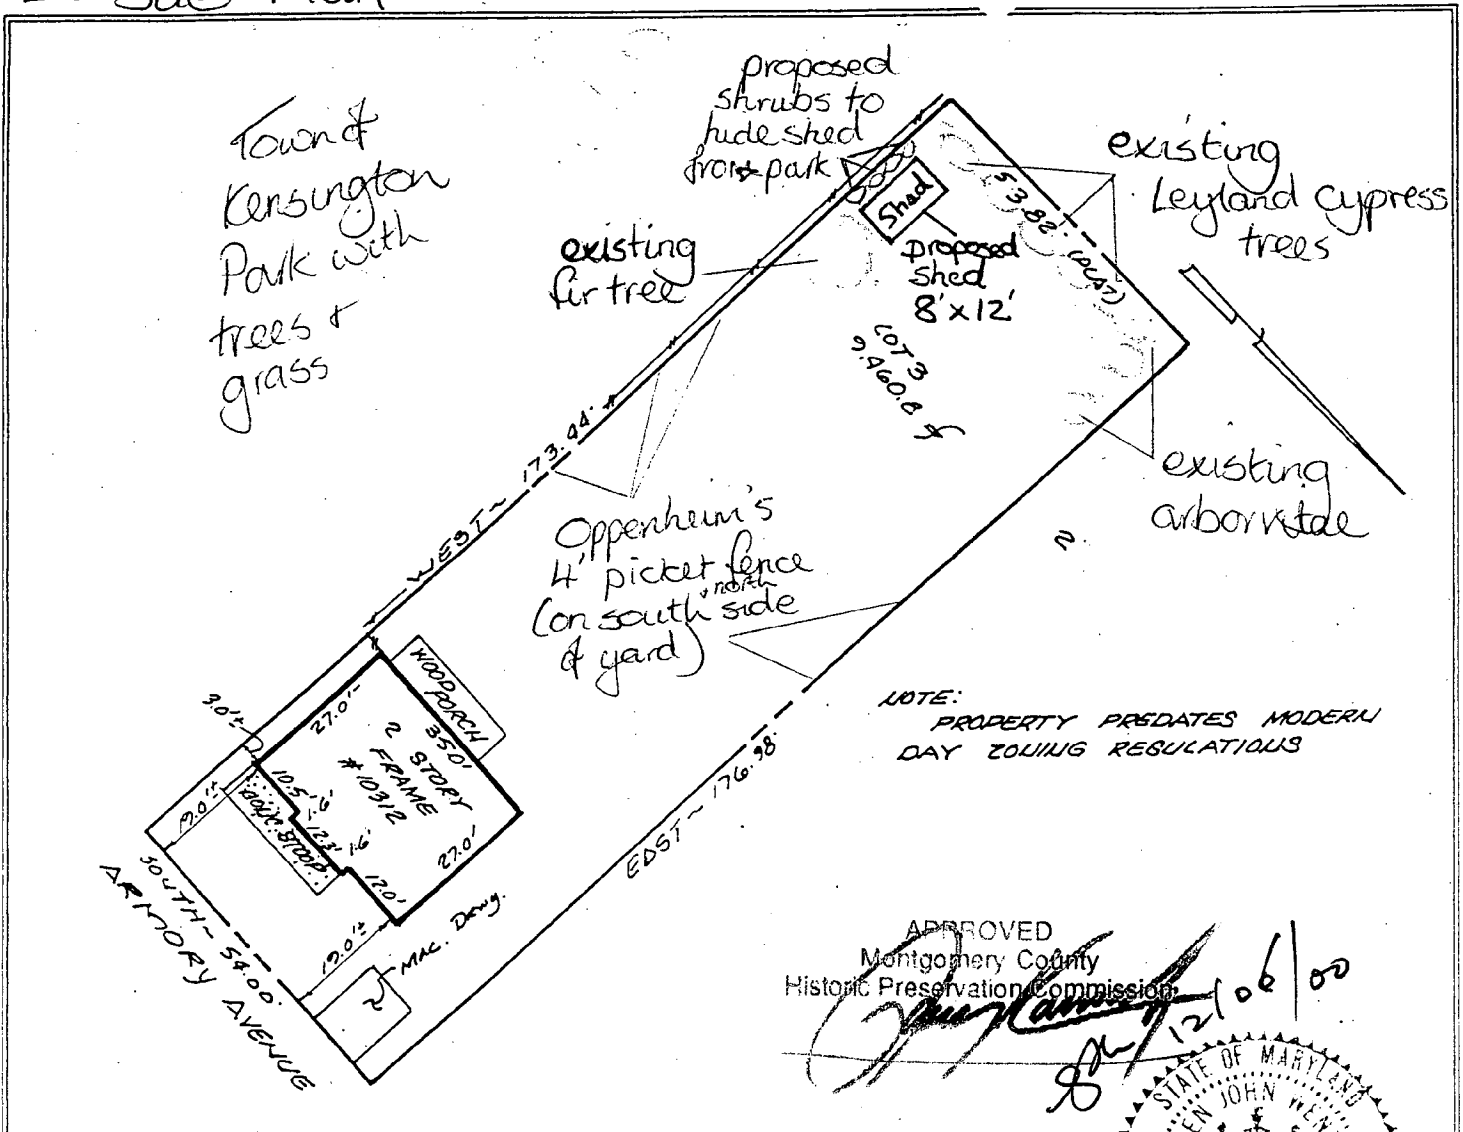 Site Plan
Town of
Kensington
Park with
trees +
grass
proposed
shrubs to
hide shed
from park
existing
Leyland Cypress
trees
Shed
53.82' (PLAT)
existing
fir tree
proposed
shed
8'x12'
LOT 3
9,460.8
WEST ~ 173.44'
existing
arborvitae
Oppenheim's
4' picket fence
(on south + north side
of yard)
2
WOOD
PORCH
NOTE:
PROPERTY PREDATES MODERN
DAY ZONING REGULATIONS
3.0'±
27.0'
35.0'
2 STORY
FRAME
#10312
10.5'
1.6'
12.3'
1.6'
12.0'
27.0'
CONC. STOOP
19.0'±
19.0'±
EAST ~ 176.98'
MAC. DRWY.
SOUTH ~ 54.00'
ARMORY AVENUE
APPROVED
Montgomery County
Historic Preservation Commission
12/06/00
STATE OF MARYLAND
JOHN